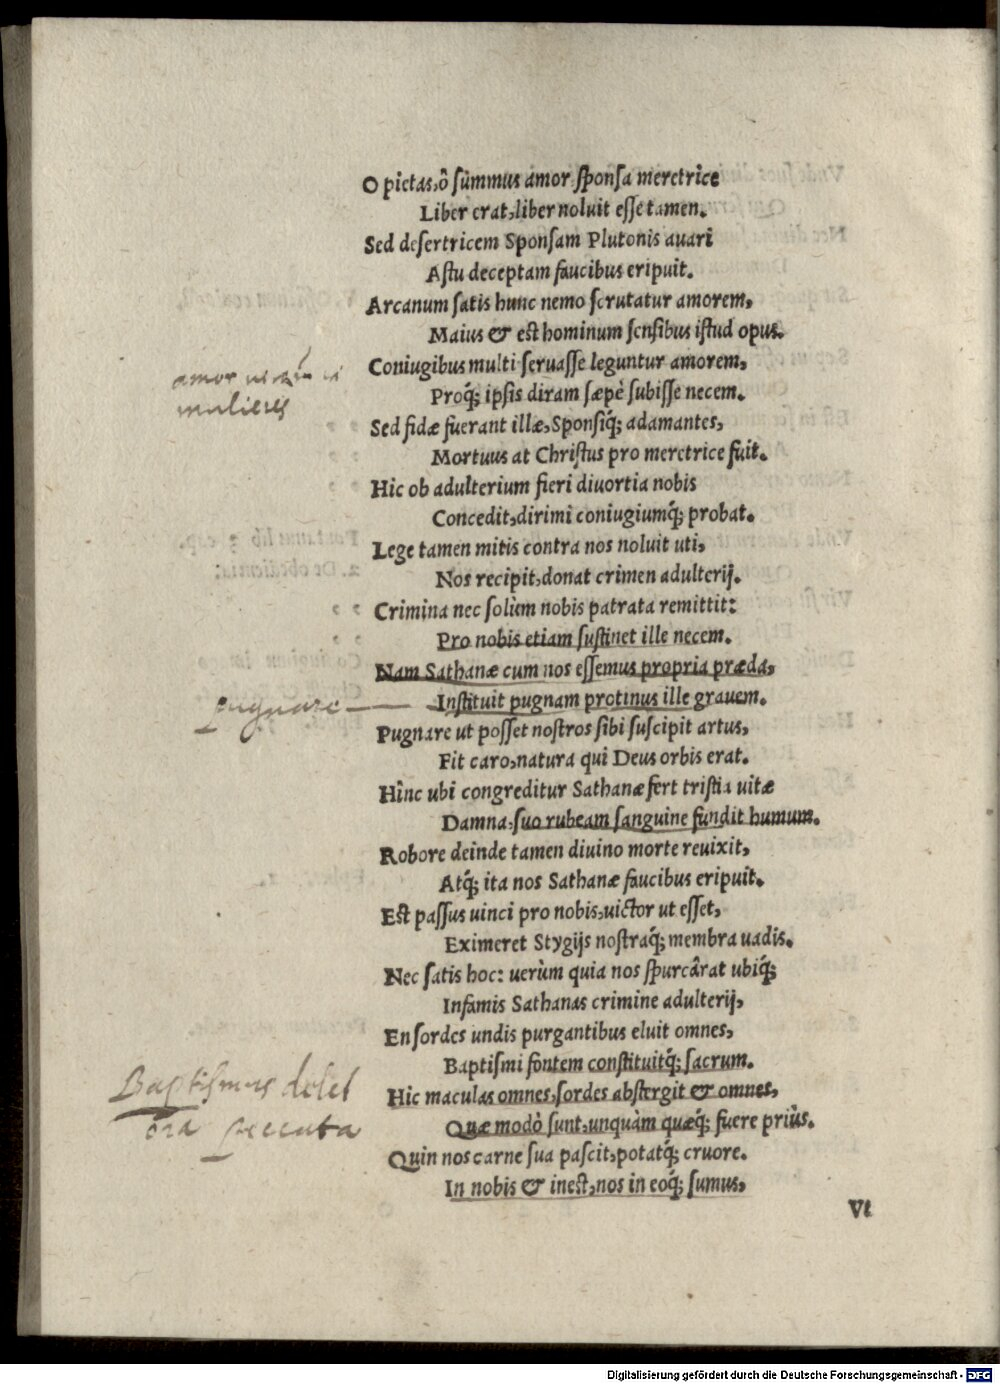 O pietas, ô summus amor sponsa meretrice
Liber erat, liber noluit esse tamen.
Sed desertricem Sponsam Plutonis auari
Astu deceptam faucibus eripuit.
Arcanum satis hunc nemo scrutatur amorem,
Maius & est hominum sensibus istud opus.
Coniugibus multi seruasse leguntur amorem,
amor
mulieres
Proq́; ipsis diram sæpè subisse necem.
Sed fidæ fuerant illæ, Sponsiq́; adamantes,
Mortuus at Christus pro meretrice fuit.
Hic ob adulterium fieri diuortia nobis
Concedit, dirimi coniugiumq́; probat.
Lege tamen mitis contra nos noluit uti,
Nos recipit, donat crimen adulterij.
Crimina nec solùm nobis patrata remittit:
Pro nobis etiam sustinet ille necem.
Nam Sathanæ cum nos essemus propria præda,
pugnare
Instituit pugnam protinus ille grauem.
Pugnare ut posset nostros sibi suscipit artus,
Fit caro, natura qui Deus orbis erat.
Hinc ubi congreditur Sathanæ fert tristia uitæ
Damna, suo rubeam sanguine fundit humum.
Robore deinde tamen diuino morte reuixit,
Atq́; ita nos Sathanæ faucibus eripuit.
Est passus uinci pro nobis, uictor ut esset,
Eximeret Stygijs nostraq́; membra uadis.
Nec satis hoc: uerùm quia nos spurcârat ubiq́;
Infamis Sathanas crimine adulterij,
En sordes undis purgantibus eluit omnes,
Baptismi fontem constituitq́; sacrum.
Baptismus delet
oĩa peccata
Hic maculas omnes, sordes abstergit & omnes,
Quæ modò sunt, unquàm quæq́; fuere priùs.
Quin nos carne sua pascit, potatq́; cruore.
In nobis & inest, nos in eoq́; sumus,
Vt
Digitalisierung gefördert durch die Deutsche Forschungsgemeinschaft - DFG